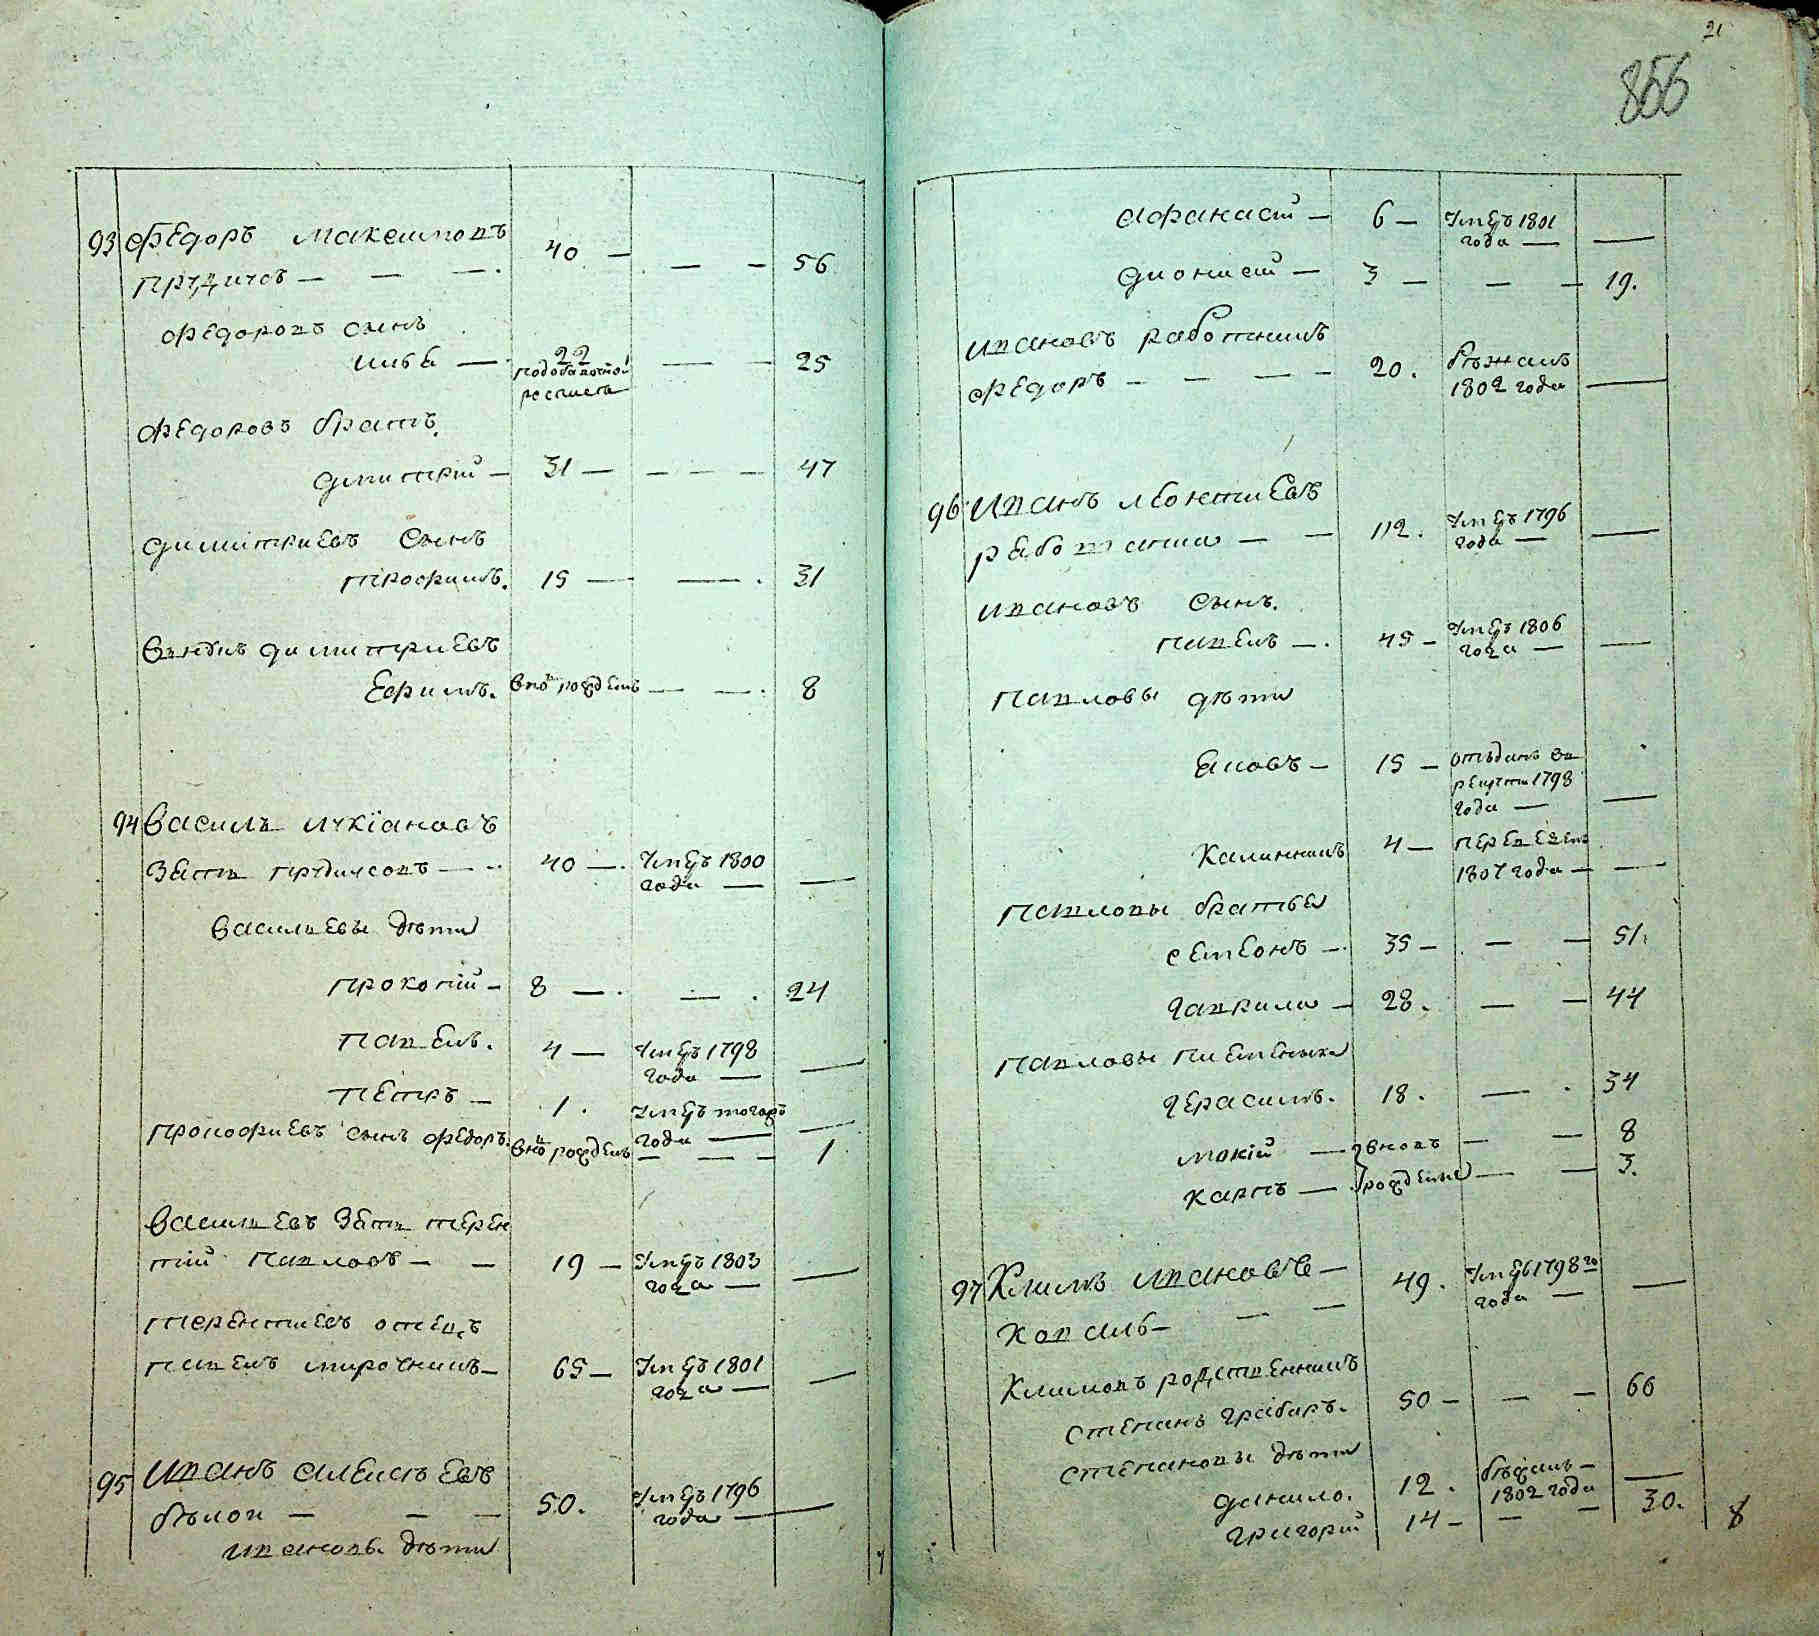 93 Федоръ Максимовъ
Прудичсъ — — — 40 — — — 56
Федоровъ сынъ
Илья — 22 — — 25
подобавочной
росписи
Федоровъ братъ
Дмитрій — 31 — — — — 47
Димитриевъ сынъ
Трофимъ. 15 — — 31
Внукъ Димитриевъ
Ефимъ. вно рожденъ — — 8
94 Василь Лукіановъ
Зять Прудичсовъ — 40 — Умеръ 1800
года — —
Васильевы дѣти
Прокопій — 8 — — 24
Павелъ. 4 — Умеръ 1798
года — —
Петръ — 1. Умеръ тогожъ
года — —
Прокофиевъ сынъ Федоръ. внов рожденъ — — — 1
Васильевъ Зять Терен
тій Павловъ — — 19 — Умеръ 1803
года — —
Терентиевъ отецъ
Павелъ Мирочникъ — 65 — Умеръ 1801
года — —
95 Иванъ Алексѣевъ
Бѣлои — — — 50. Умеръ 1796
года — —
Ивановы дѣти
21
856
Афанасій — 6 — Умеръ 1801
года — —
Дионисій — 3 — — — 19.
Ивановъ работникъ
Федоръ — — — — 20. бѣжалъ
1802 года —
96 Иванъ Леонтиевъ
работаша — — 112. Умеръ 1796
года — —
Ивановъ сынъ.
Павелъ — . 45 — Умеръ 1806
года — —
Павловы дѣти
Яковъ — 15 — отъданъ въ
рекруты 1798
года — —
Калинникъ 4 — переведенъ
1807 года — —
Павловы братья
Семіонъ — 35 — — — 51.
Гаврила — 28. — — 44
Павловы племеныки
Герасимъ. 18. — . 34
Мокій — вновь — — 8
Карпъ — рожденые — — 3.
97 Климъ Ивановъ — 49. Умеръ 1798го
года — —
Коваль — — —
Климовъ родственникъ
Степанъ Грабаръ. 50 — — — 66
Степановы дѣти
Данило. 12. бѣжалъ —
1802 года —
Григорій 14 — — — 30.
8